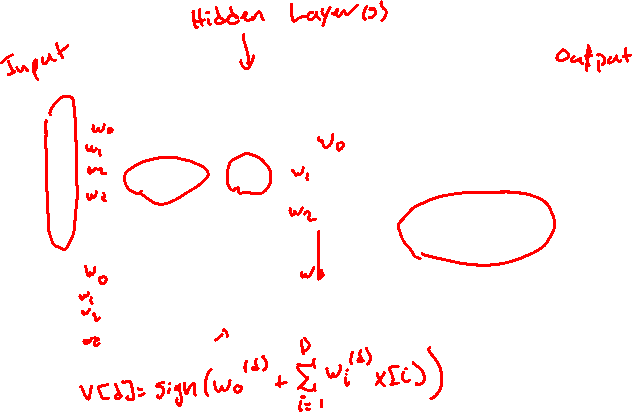 Hidden Layer(s)
Input
Output
w0
w1
w2
w2
w0
w1
w2
w
w0
w1
w2
w2
V[d] = sign(w0^(d) + Σ_{i=1}^{D} wi^(d) x[i])